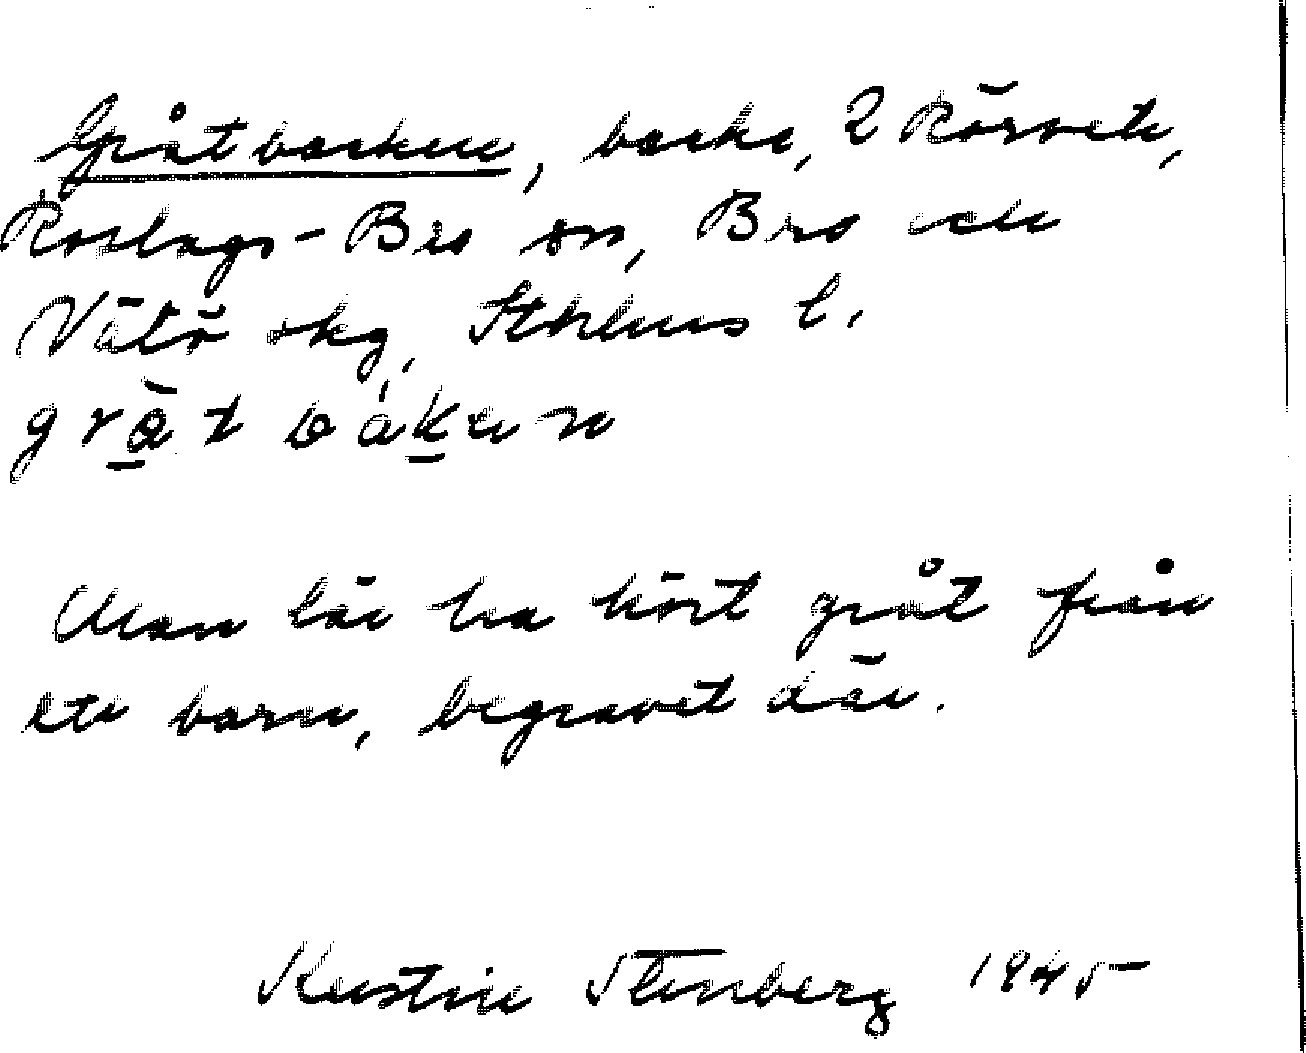 Gråtbacken, backe, 2 Rörvik,
Roslags-Bro sn, Bro och
Vätö skg, Sthlms l.
gråtbaken
Man lär ha hört gråt från
ett barn, begravet där.
Kerstin Stenberg 1945